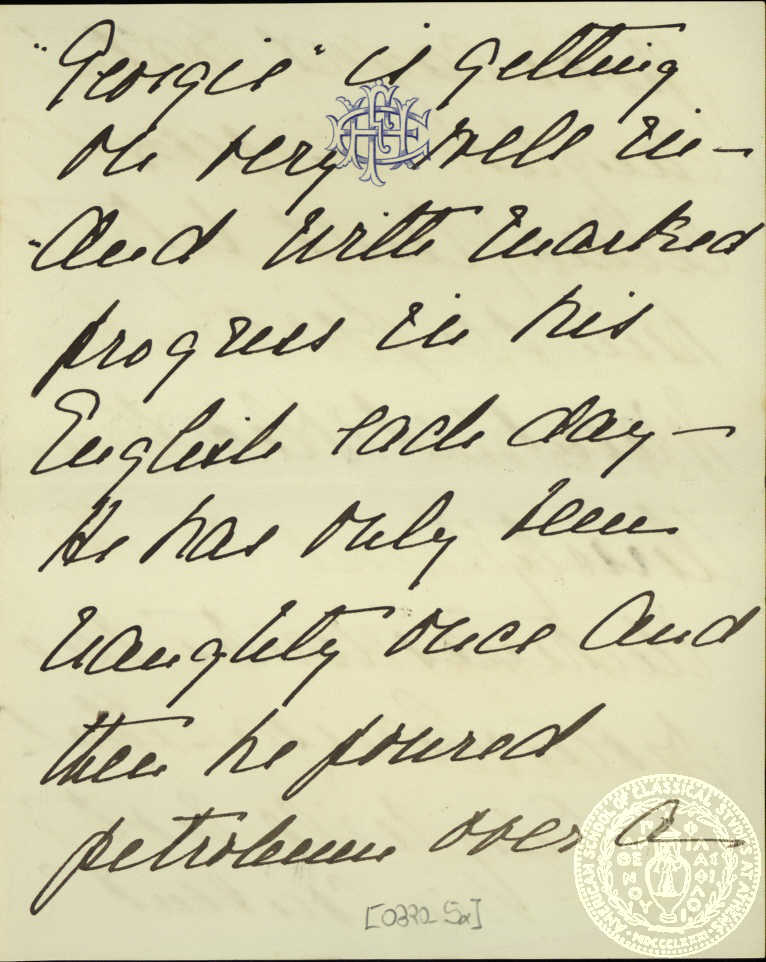 "Georgie" is getting
on very well in—
"And with marked
progress in his
English each day—
He has only been
naughty once and
then he poured
petroleum over a
[0392 5a]
AMERICAN SCHOOL OF CLASSICAL STUDIES AT ATHENS
ΠΑΡΘΕΝΟΥ ΦΙΛΑΣ
MDCCCLXXXI